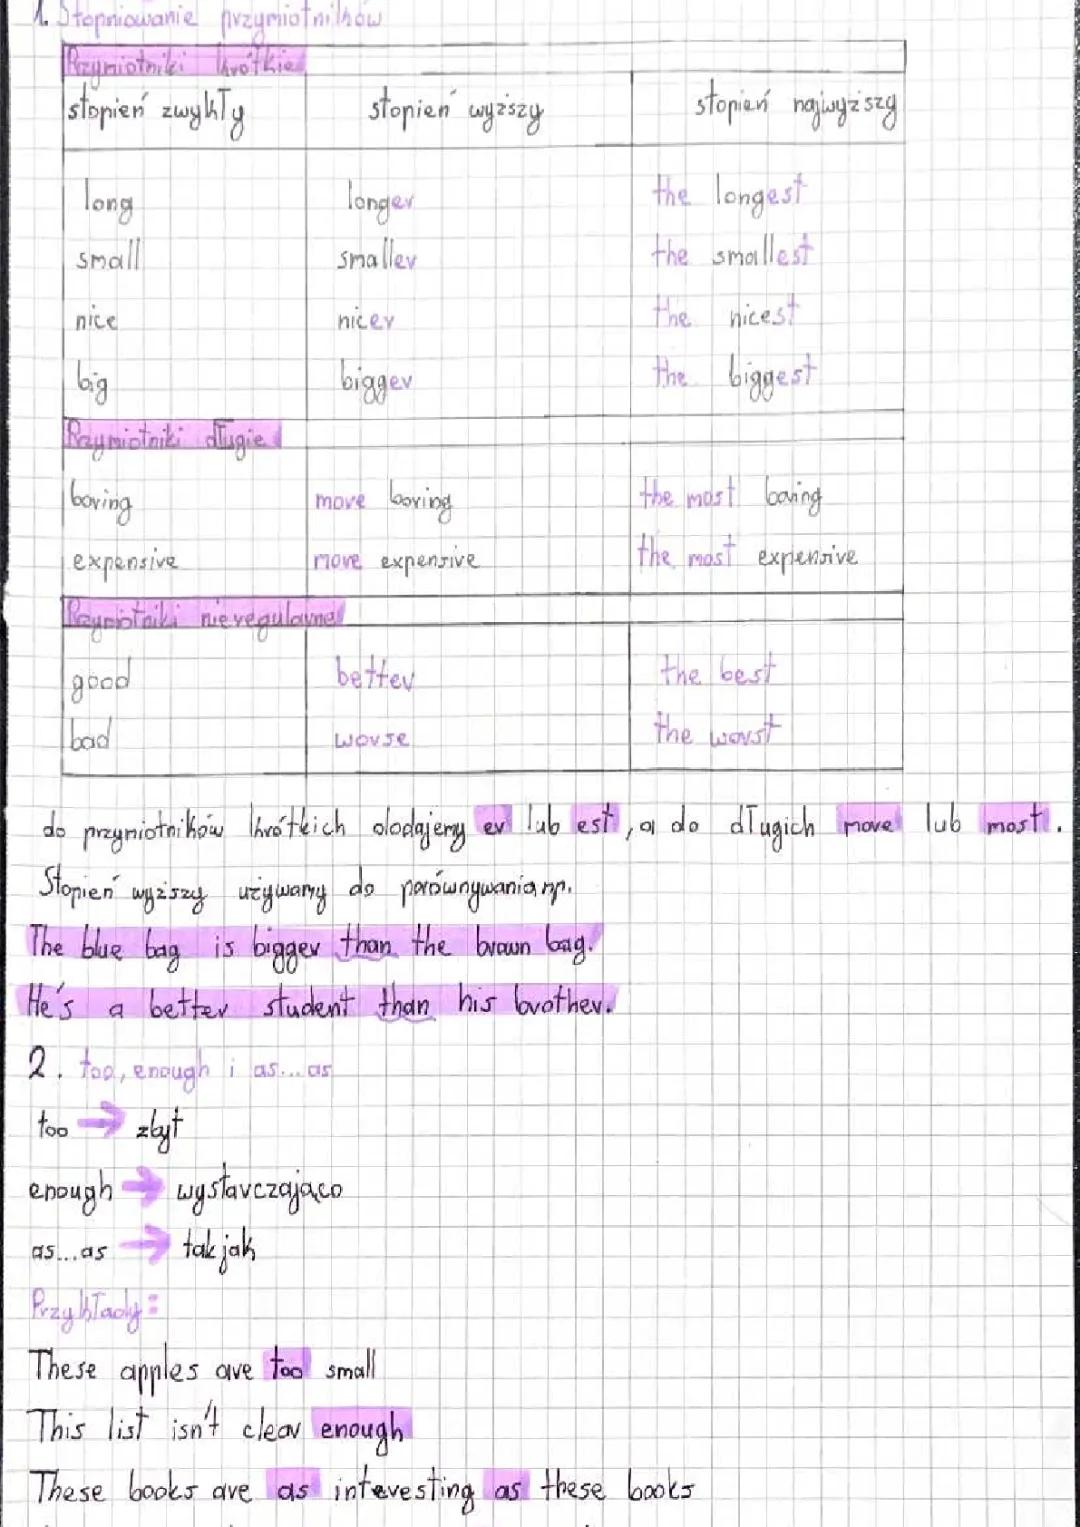 1. Stopniowanie przymiotników
Przymiotniki krótkie
stopień zwykły stopień wyższy stopień najwyższy
long longer the longest
small smaller the smallest
nice nicer the nicest
big bigger the biggest
Przymiotniki długie
boring more boring the most boring
expensive more expensive the most expensive
Przymiotniki nieregularne
good better the best
bad worse the worst
do przymiotników krótkich dodajemy er lub est, a do długich more lub most.
Stopień wyższy używamy do porównywania np.
The blue bag is bigger than the brown bag.
He's a better student than his brother.
2. too, enough i as...as
too → zbyt
enough → wystarczająco
as...as → tak jak
Przykłady:
These apples are too small
This list isn't clear enough
These books are as interesting as these books